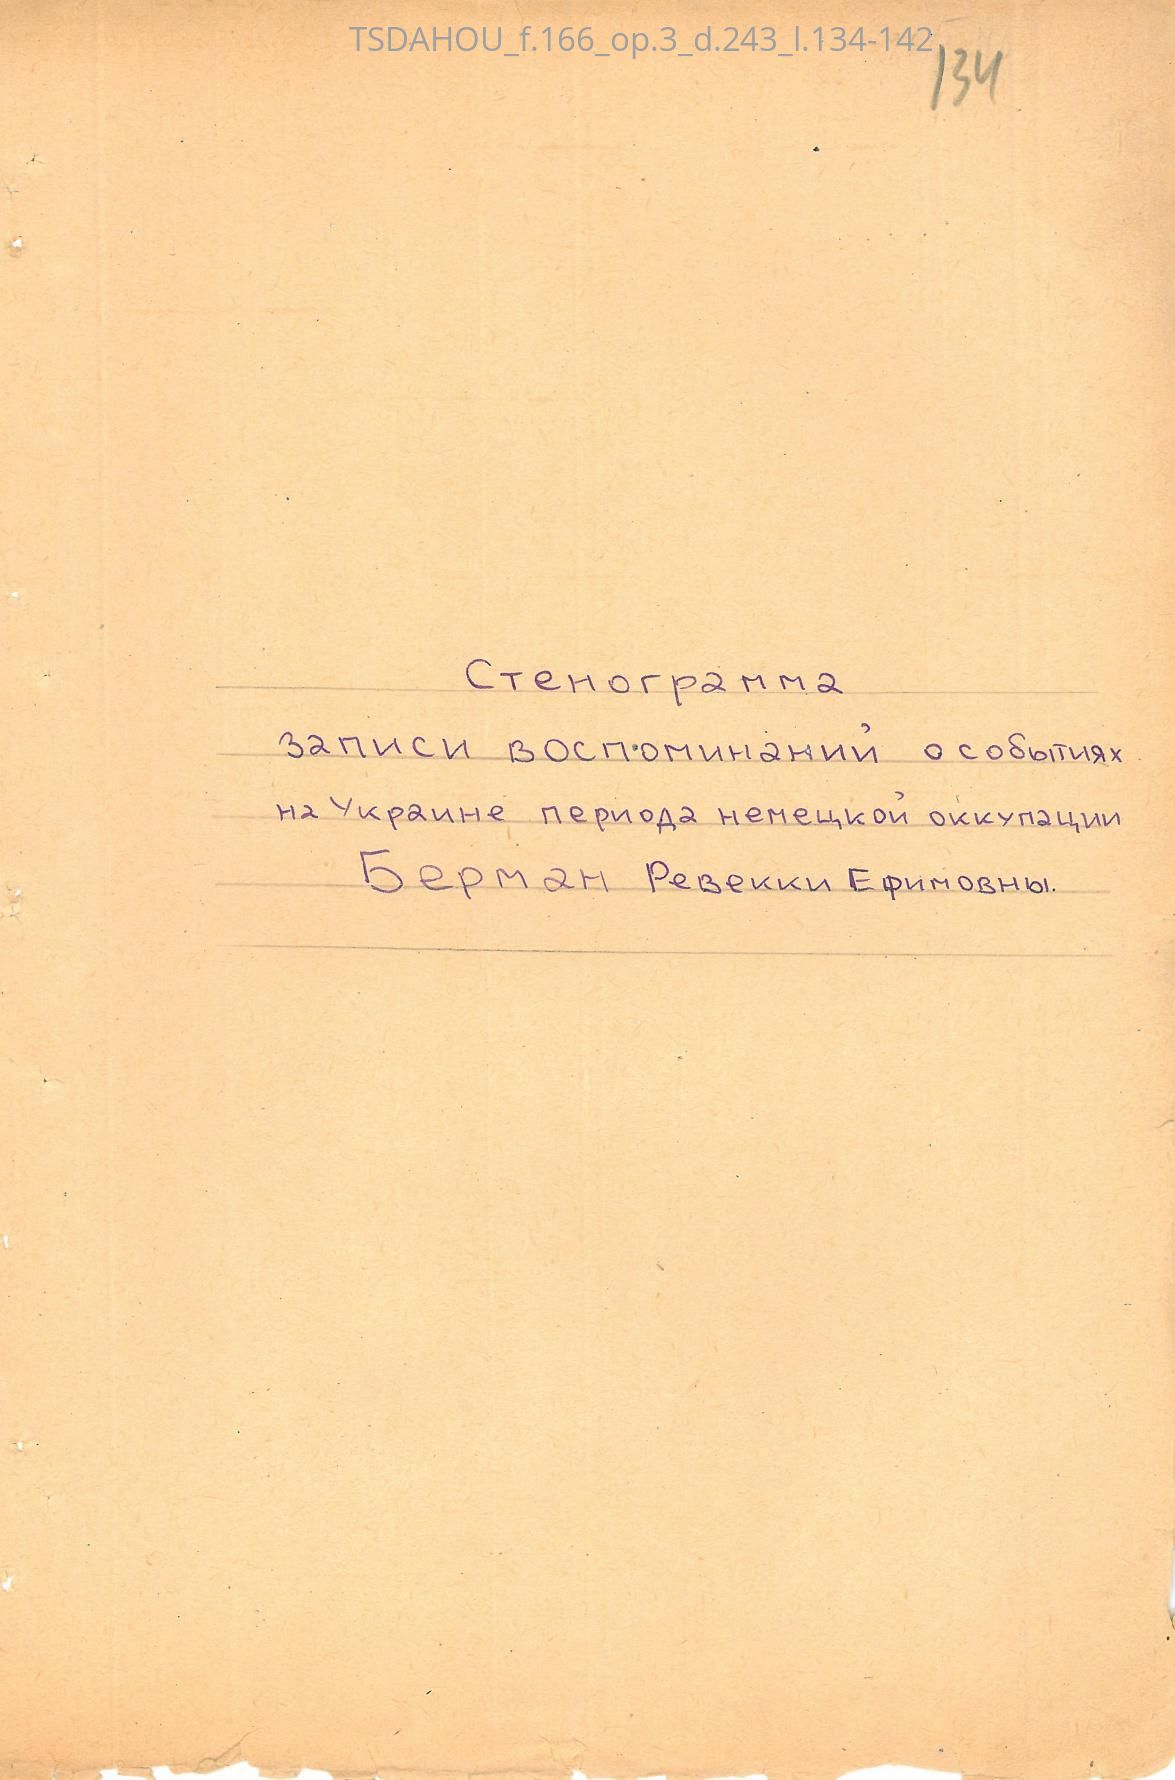 TSDAHOU_f.166_op.3_d.243_l.134-142
134
Стенограмма
записи воспоминаний о событиях
на Украине периода немецкой оккупации
Берман Ревекки Ефимовны.